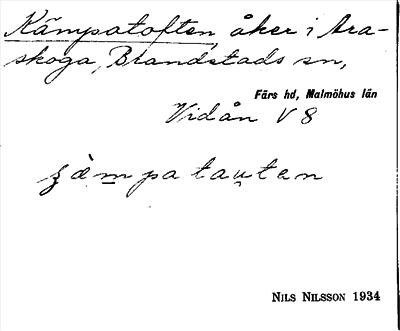 Kämpatoften, åker i Ara-
skoga, Brandstads sn,
Färs hd, Malmöhus län
Vidån V 8
NILS NILSSON 1934